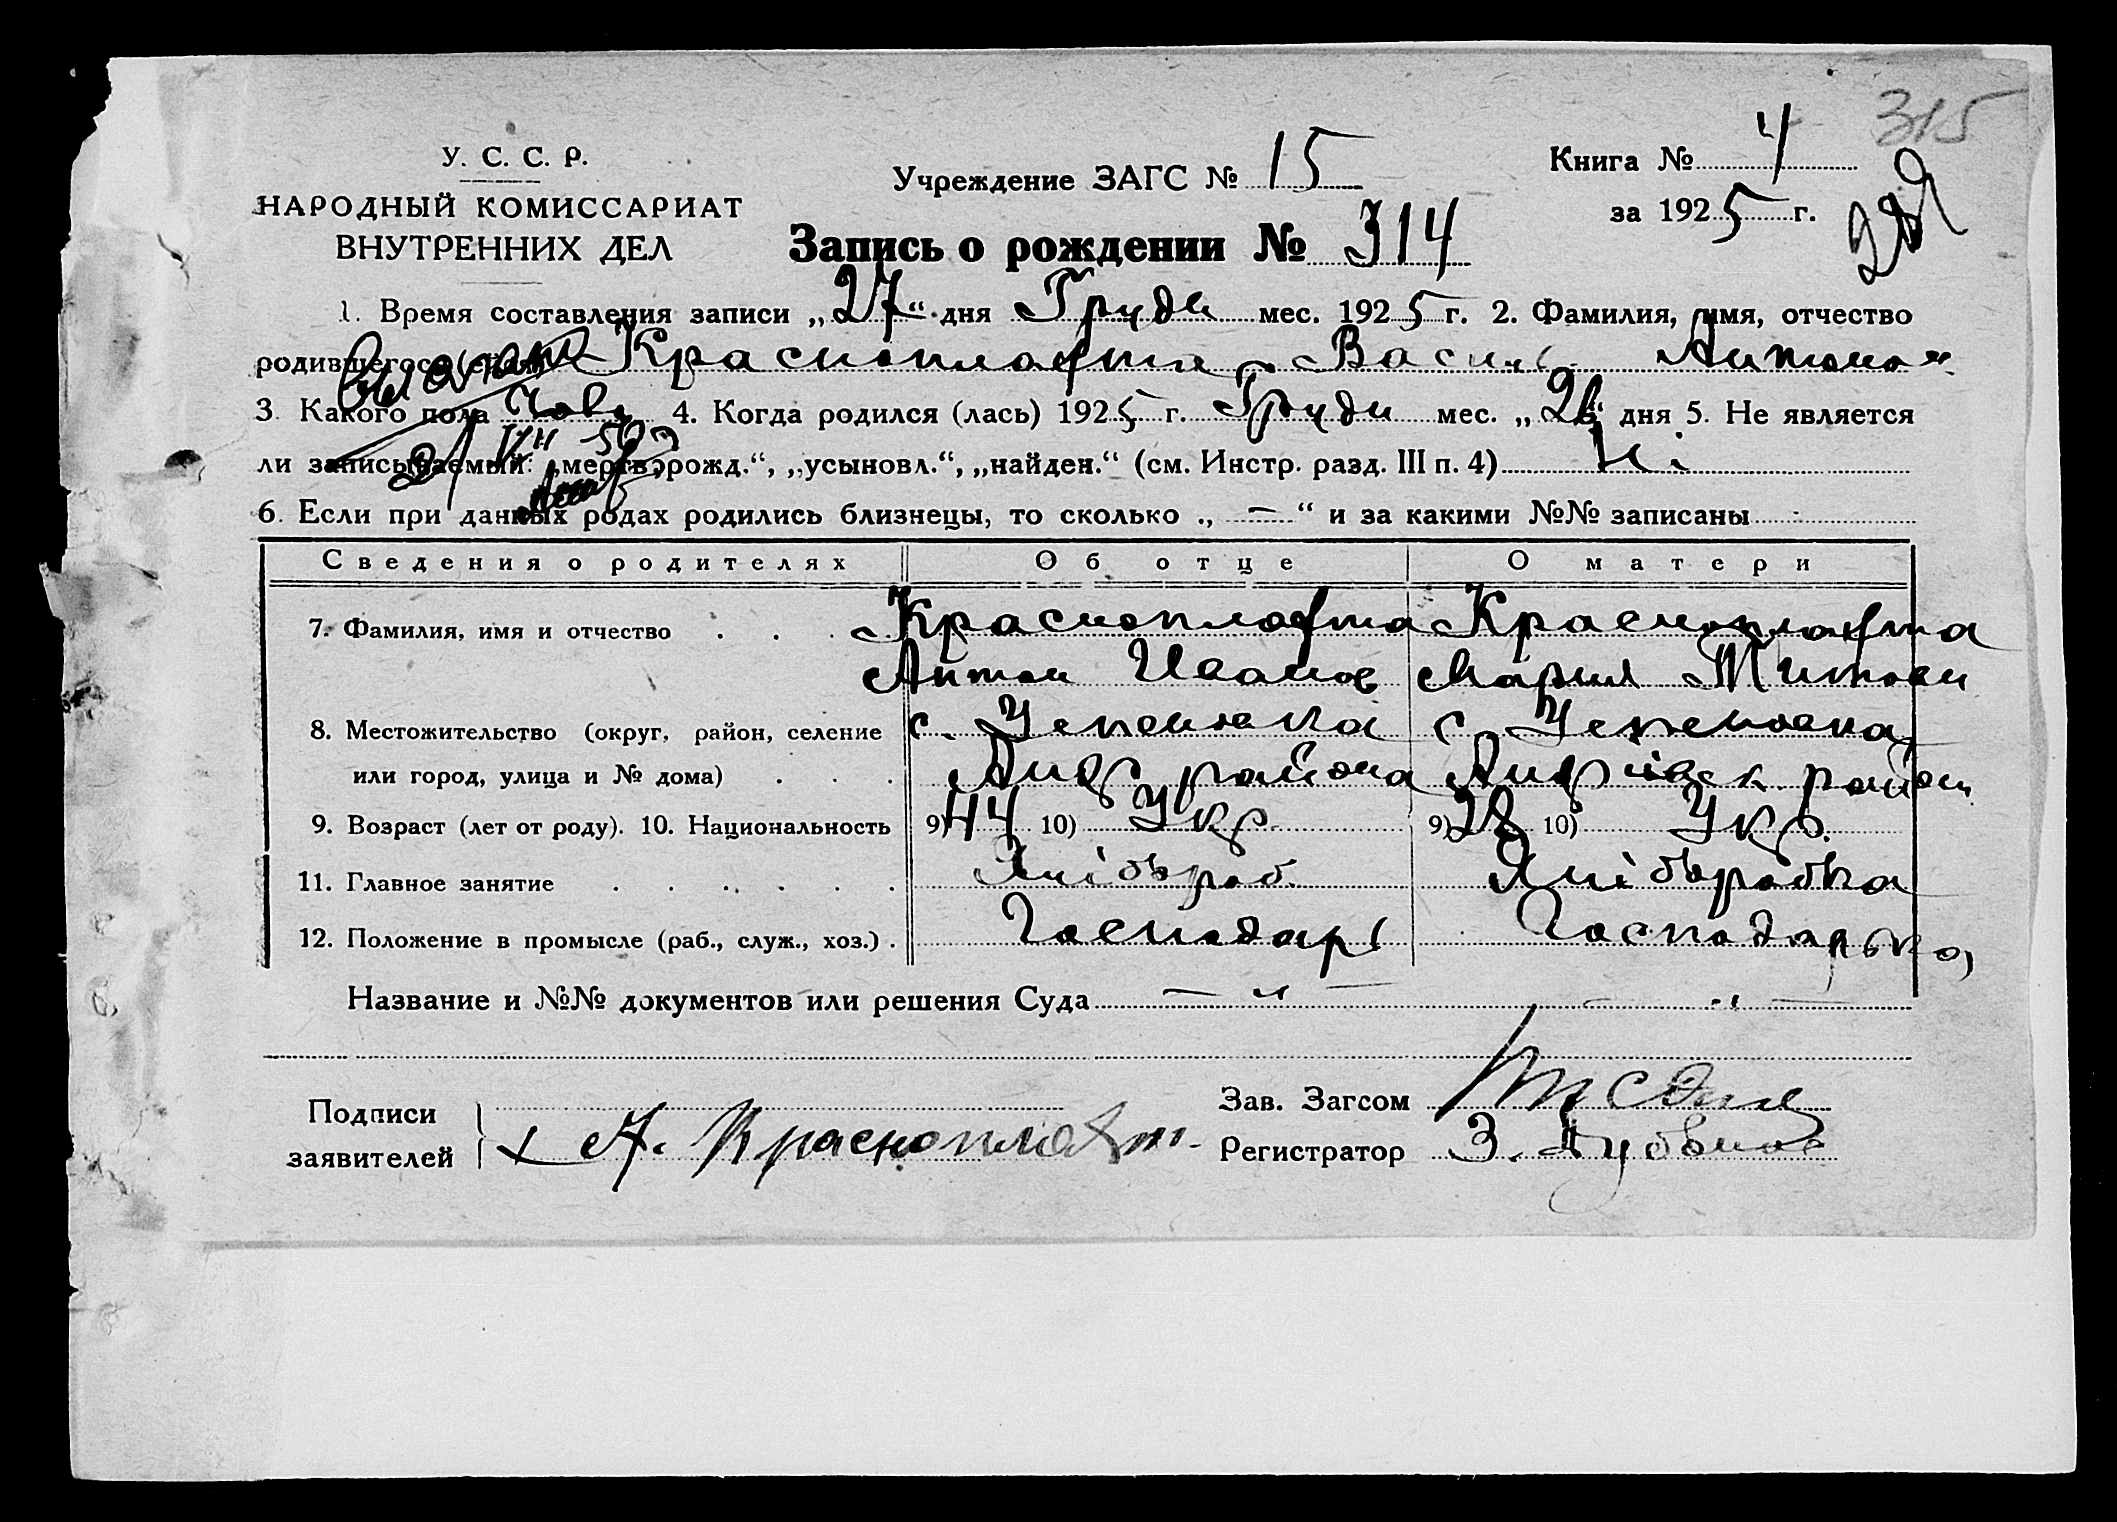 315
У. С. С. Р.
НАРОДНЫЙ КОМИССАРИАТ
ВНУТРЕННИХ ДЕЛ
Учреждение ЗАГС № 15
Книга № 4
за 1925 г.
Запись о рождении № 314
1. Время составления записи „27“ дня Грудн мес. 1925 г. 2. Фамилия, имя, отчество
родившегося Красноплахта Василь Антонов
3. Какого пола Чолов 4. Когда родился (лась) 1925 г. Грудн мес. „26“ дня 5. Не является
ли записываемый: „мертворожд.“, „усыновл.“, „найден.“ (см. Инстр. разд. III п. 4) Ні
6. Если при данных родах родились близнецы, то сколько „—“ и за какими №№ записаны
Сведения о родителях Об отце О матери
7. Фамилия, имя и отчество Красноплахта Красноплахта
Антон Иванов Мария Титовн
8. Местожительство (округ, район, селение с. Успеновка с. Успеновка
или город, улица и № дома) Андр района Андріївск район
9. Возраст (лет от роду). 10. Национальность 9) 44 10) Укр. 9) 28 10) Укр.
11. Главное занятие Хлібороб. Хлібробка
12. Положение в промысле (раб., служ., хоз.) Господарь Господарька
Название и №№ документов или решения Суда — „ — — „ —
Подписи
заявителей
А. Красноплахт
Зав. Загсом
Регистратор З.